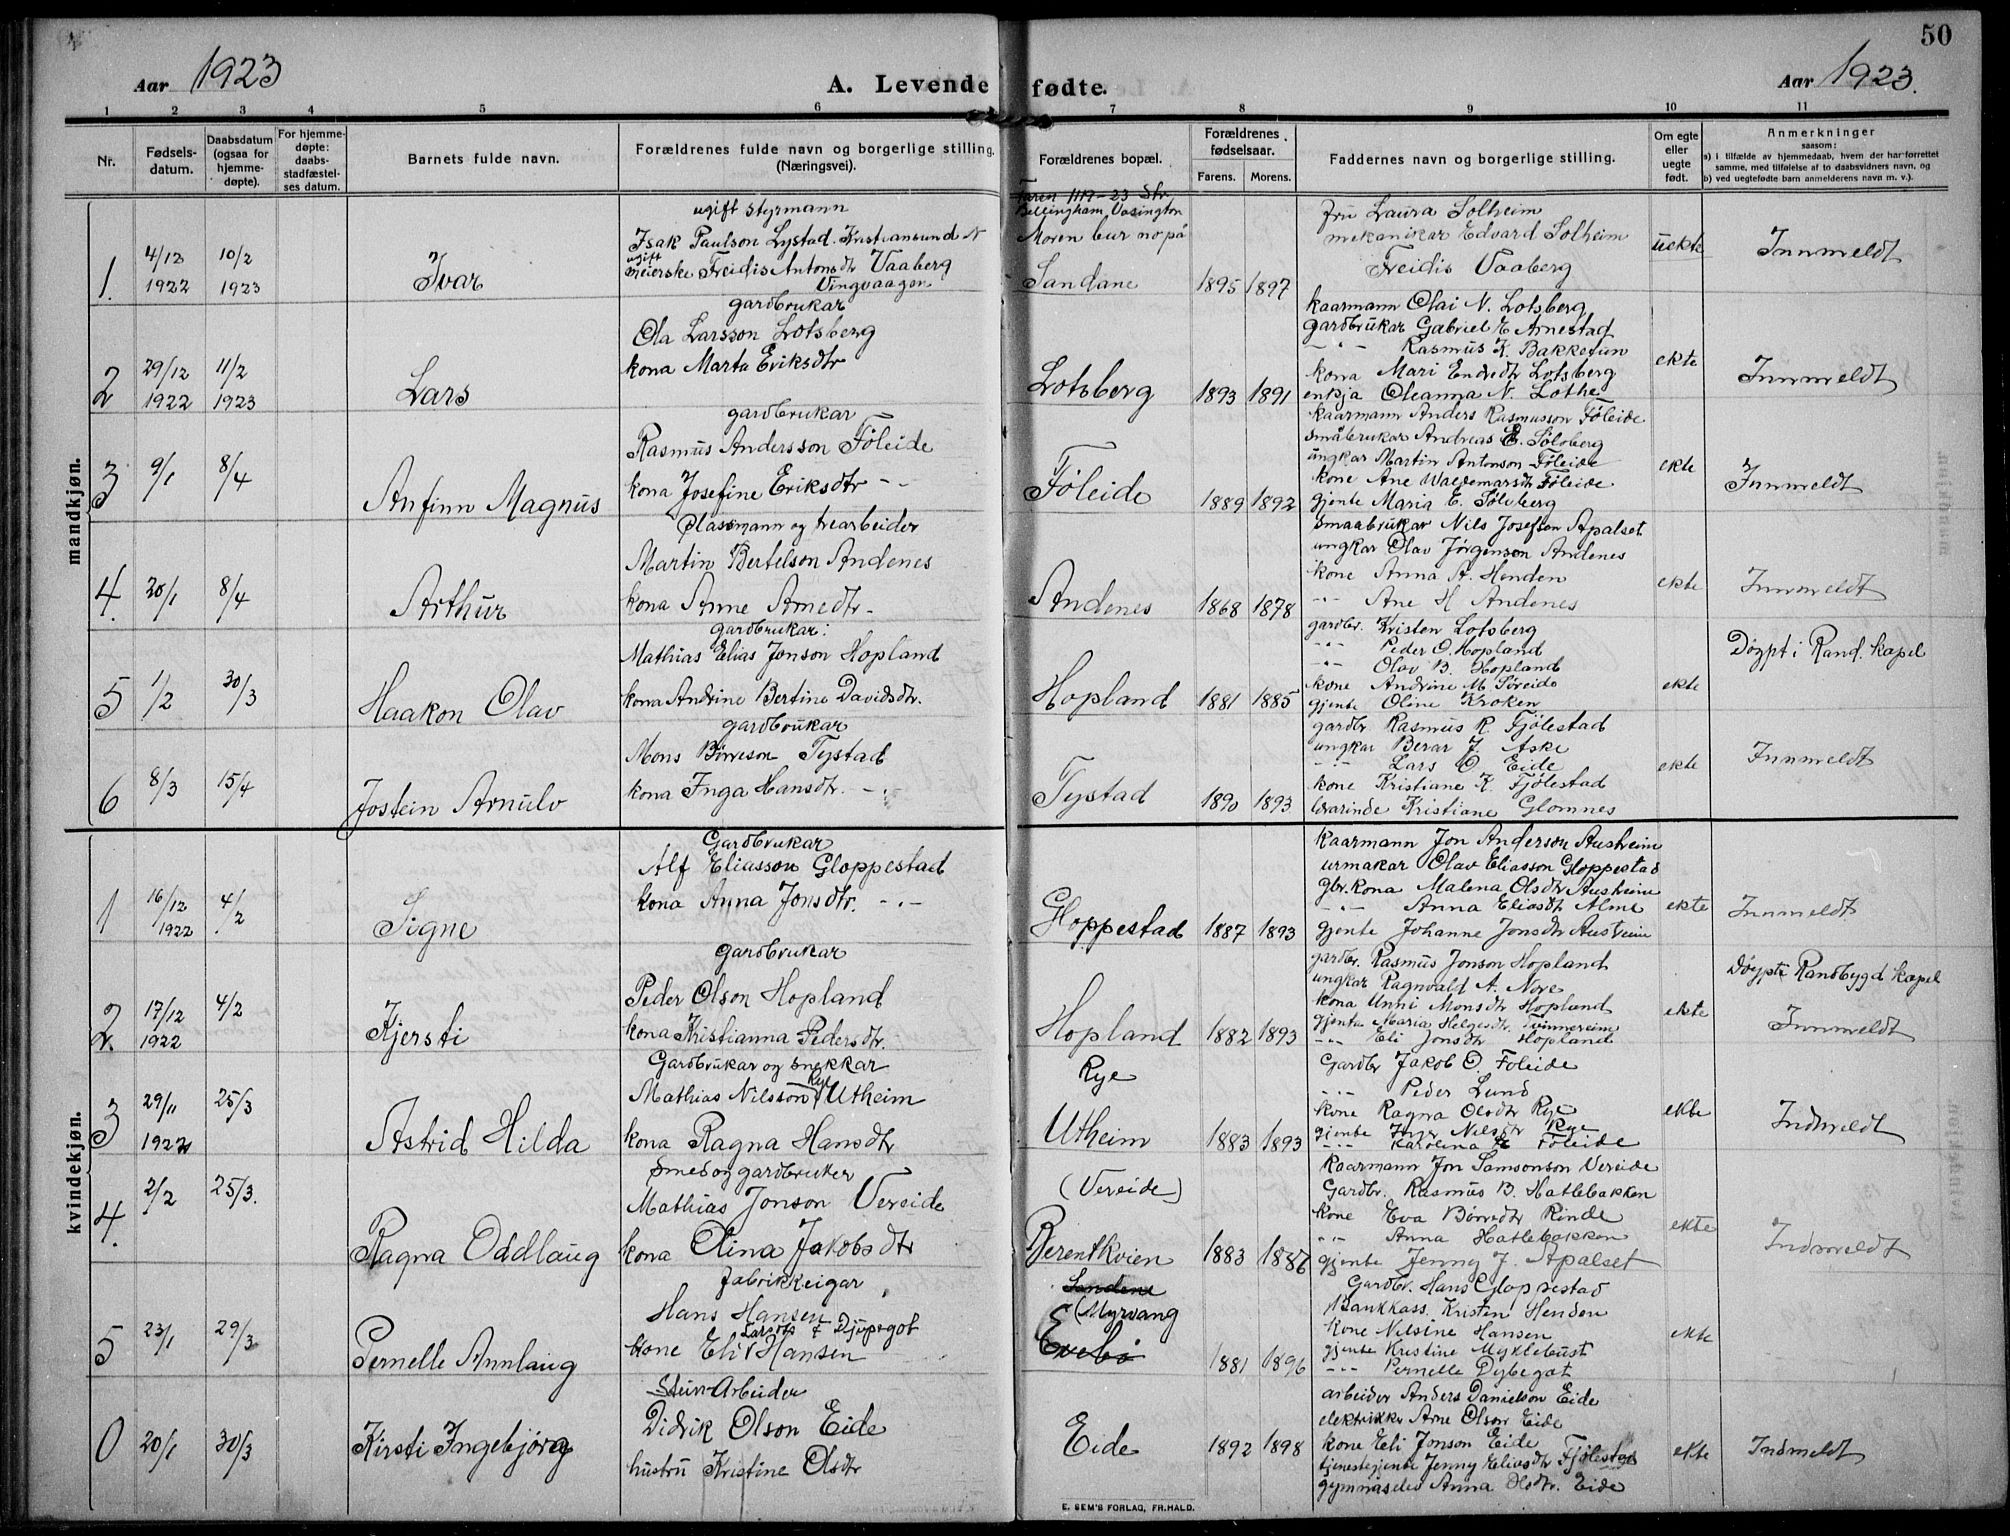 50
Aar 1923
A. Levende fødte.
Aar 1923.
1 2 3 4 5 6 7 8 9 10 11
Nr.
Fødsels-
datum.
Daabsdatum
(ogsaa for
hjemme-
døpte).
For hjemme-
døpte:
daabs-
stadfæstel-
ses datum.
Barnets fulde navn.
Forældrenes fulde navn og borgerlige stilling.
(Næringsvei).
Forældrenes bopæl.
Forældrenes
fødselsaar.
Farens. Morens.
Faddernes navn og borgerlige stilling.
Om egte
eller
uegte
født.
Anmerkninger
saasom:
a) i tilfælde av hjemmedaab, hvem der har forrettet
samme, med tilføielse af to daabsvidners navn, og
b) ved uegtefødte barn anmelderens navn m. v.).
mandkjøn.
1.
4/12
1922
10/2
1923
Ivar
ugift styrmann
Isak Paulson Lystad. Kristiansund N
ugift
meierske Freidis Antonsdtr Vaaberg
Vingvaagen
Faren 1119-23 Str
Bellingham, Vasington
Moren bur no på
Sandane
1895 1897
fru Laura Solheim
mekanikar Edvard Solheim
Freidis Vaaberg
uekte
Innmeldt
2
29/12
1922
11/2
1923
Lars
gardbrukar
Ola Larsson Lotsberg
kona Marta Eriksdtr
Lotsberg
1893 1891
kaarmann Olai N. Lotsberg
gardbrukar Gabriel E Arnestad
-"- Rasmus K. Bakketun
kona Mari Endredtr Lotsberg
enkja Oleanna N. Lothe
ekte
Innmeldt
3
9/1
8/4
Anfinn Magnus
gardbrukar
Rasmus Andersson Føleide
kona Josefine Eriksdtr -"-
Føleide
1889 1892
kaarmann Anders Rasmusson Føleide
småbrukar Andreas E. Sølvberg
ungkar Martin Antonson Føleide
kone Ane Waldemarsdtr Føleide
gjente Maria E. Sølvberg
ekte
Innmeldt
4.
20/1
8/4
Arthur
Plassmann og trearbeider
Martin Bertelson Andenes
kona Anne Arnedtr -
Andenes
1868 1878
Smaabrukar Nils Josefson Apalset
ungkar Olav Jørgenson Andenes
kone Anna A. Henden
-"- Ane H Andenes
ekte
Innmeldt
5
1/2
30/3
Haakon Olav
gardbrukar:
Mathias Elias Jonson Hopland
kona Andrine Bertine Davidsdtr.
Hopland
1881 1885
gardbr. Kristen Lotsberg
-"- Peder O. Hopland
-"- Olav B. Hopland
kone Andrine M. Søreide
gjente Oline Kroken
ekte
Døypt i Rand. kapel
6
8/3
15/4
Jostein Arnulv
gardbrukar
Mons Børreson Tystad
kona Inga Hansdtr. -"-
Tystad
1890 1893
gardbr Rasmus R. Fjølestad
ungkar Berar J. Aske
-"- Lars O. Eide
kone Kristiane K. Fjølestad
lærarinde Kristiane Glomnes
ekte
Innmeldt
kvindekjøn.
1
16/12
1922
4/2
Signe
Gardbrukar
Alf Eliasson Gloppestad
kona Anna Jonsdtr. -"-
Gloppestad
1887 1893
kaarmann Jon Anderson Austreim
urmakar Olav Eliasson Gloppestad
gbr. kona Malena Olsdtr Austreim
-"- Anna Eliasdtr Alme
gjente Johanne Jonsdtr Austreim
ekte
Innmeldt
2.
17/12
1922
4/2
Kjersti
gardbrukar
Peder Olson Hopland
kona Kristianna Pedersdtr.
Hopland
1882 1893
gardbr. Rasmus Jonson Hopland
ungkar Ragnvald A. Nore
kona Unni Monsdtr Hopland
gjente Maria Helgesdtr. Tvinnereim
-"- Eli Jonsdtr Hopland
ekte
Døypt i Randbygd kapel
Innmeldt
3
29/11
1922
25/3
Astrid Hilda
Gardbrukar og snekkar
Rye
Mathias Nilsson Utheim
kona Ragna Hansdtr
Rye
Utheim
1883 1893
Gardbr Jakob O. Føleide
-"- Peder Lund
kone Ragna Olsdtr Rye
gjente Inger Nilsdtr Rye
-"- Karolina Føleide
ekte
Indmeldt
4.
2/2
25/3.
Ragna Oddlaug
Smed og gardbruker
Mathias Jonson Vereide
kona Olina Jakobsdtr
(Vereide)
Berentkvien
1883 1886
Kaarmann Jon Samsonson Vereide
Gardbr. Rasmus B. Hatlebakken
kone Eva Børredtr Rinde
-"- Anna Hatlebakken
gjente Jenny J. Apalset
ekte
Indmeldt
5
23/1
29/3
Pernelle Annlaug
fabrikkeigar
Hans Hansen
Larsdtr f Djupegot
kone Eli Hansen
Sandene
(Myrvang
Evebø
1881 1896
Gardbr. Hans Gloppestad
Bankkass. Kristen Henden
kone Nilsine Hansen
gjente Kristine Myklebust
-"- Pernelle Dybegot
ekte
0
20/1
30/3
Kirsti Ingebjørg
Stein-Arbeider
Didrik Olson Eide
hustru Kristine Olsdtr
Eide
1892 1898
arbeider Anders Danielson Eide
elektrikker Arne Olson Eide
kone Eli Jonson Eide
tjenestegjente Jenny Eliasdtr Fjølestad
gymnaselev Anna Olsdtr. Eide
ekte
Indmeldt
E. SEM'S FORLAG, FR.HALD.